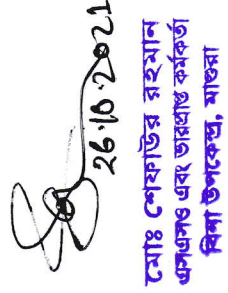 26.10.2021
মোঃ শেফাউর রহমান
এসএসও এবং ভারপ্রাপ্ত কর্মকর্তা
বিনা উপকেন্দ্র, মাগুরা